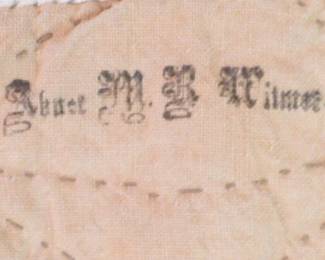 Abner M. R. Witmer